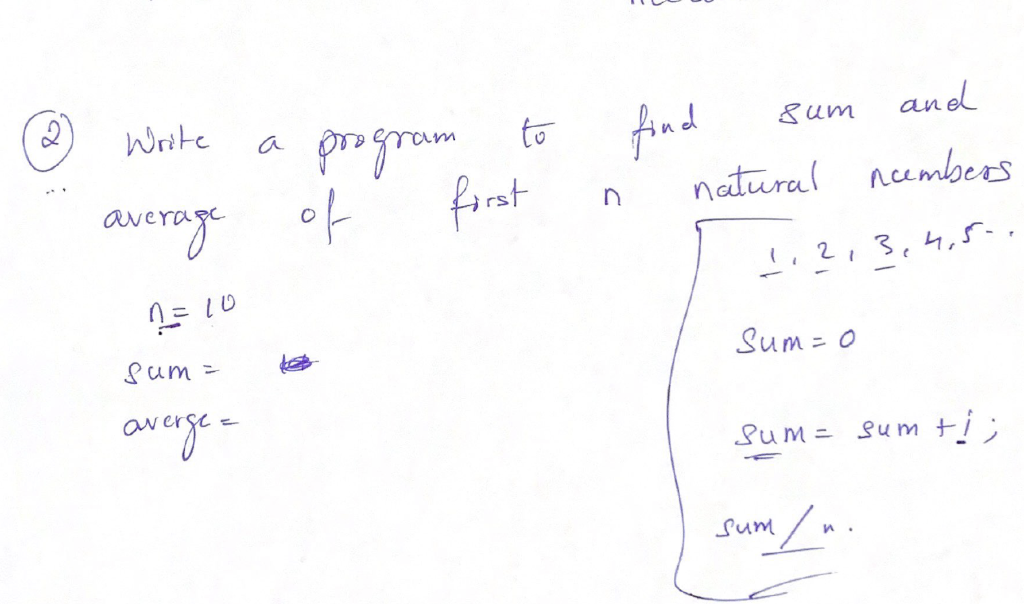 2 Write a program to find sum and
average of first n natural numbers
n = 10
sum =
averge =
1, 2, 3, 4, 5 - .
Sum = 0
sum = sum + i ;
sum / n .